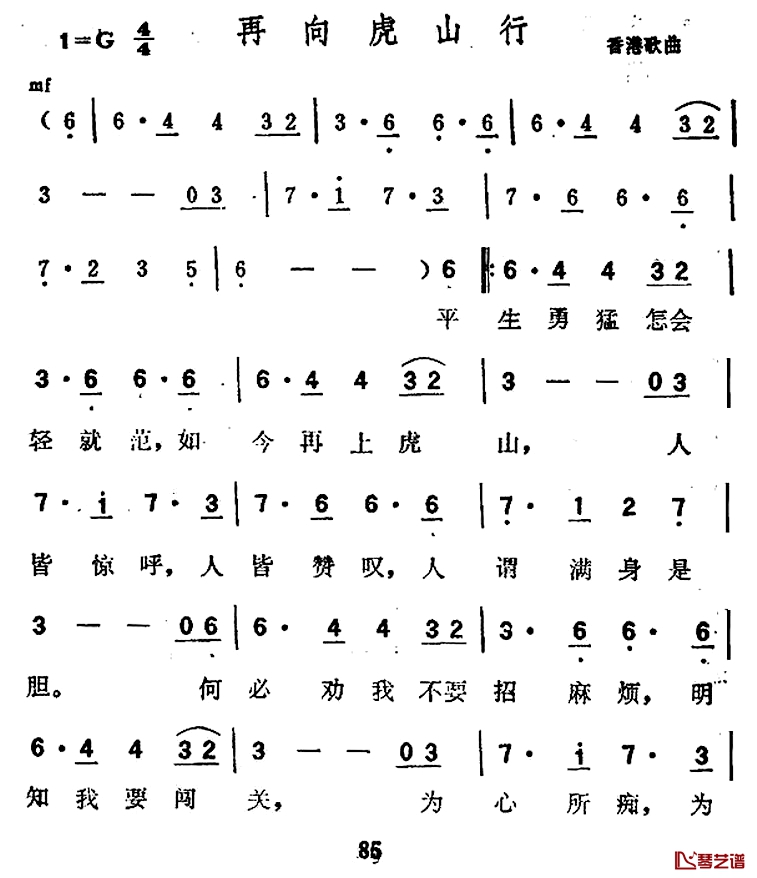 再向虎山行
1=G 4/4 香港歌曲
mf
( 6 | 6 · 4 4 3 2 | 3 · 6 6 · 6 | 6 · 4 4 3 2 |
3 — — 0 3 | 7 · i 7 · 3 | 7 · 6 6 · 6 |
7 · 2 3 5 | 6 — — ) 6 ‖: 6 · 4 4 3 2 |
平 生 勇 猛 怎会
3 · 6 6 · 6 | 6 · 4 4 3 2 | 3 — — 0 3 |
轻 就 范，如 今 再 上 虎 山， 人
7 · i 7 · 3 | 7 · 6 6 · 6 | 7 · 1 2 7 |
皆 惊 呼，人 皆 赞 叹，人 谓 满 身 是
3 — — 0 6 | 6 · 4 4 3 2 | 3 · 6 6 · 6 |
胆。 何 必 劝 我 不要 招 麻 烦，明
6 · 4 4 3 2 | 3 — — 0 3 | 7 · i 7 · 3 |
知 我 要 闯 关， 为 心 所 痴，为
85
琴艺谱